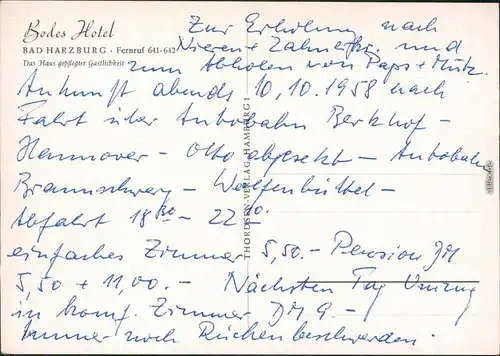 Bodes Hotel
BAD HARZBURG · Fernruf 641-642
Das Haus gepflegter Gastlichkeit
Zur Erholung nach
Nieren & Zahnerkr. und
zum Abholen von Paps + Mutz.
Ankunft abends 10.10.1958 nach
Fahrt über Autobahn Berkhof –
Hannover – Otto abgesetzt – Autobahn
Braunschweig – Wolfenbüttel –
Abfahrt 18 30 – 22
einfaches Zimmer 5,50.– Pension DM
5,50 + 11,00.– Nächsten Tag Umzug
in Zimmer DM 9.–
Immer noch Rückenbeschwerden.
THORDSEN-VERLAG, HAMBURG 1